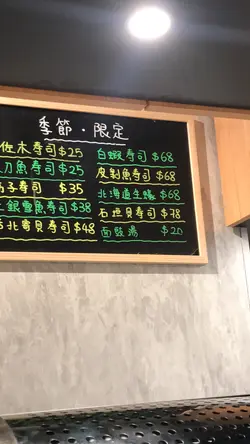 季節·限定
佐木寿司$25 白蝦寿司$68
刀魚寿司$25 皮剝魚寿司$68
子寿司 $35 北海道生蠔$68
銀雪魚寿司$38 石垣貝寿司$78
北寄貝寿司$48 $20